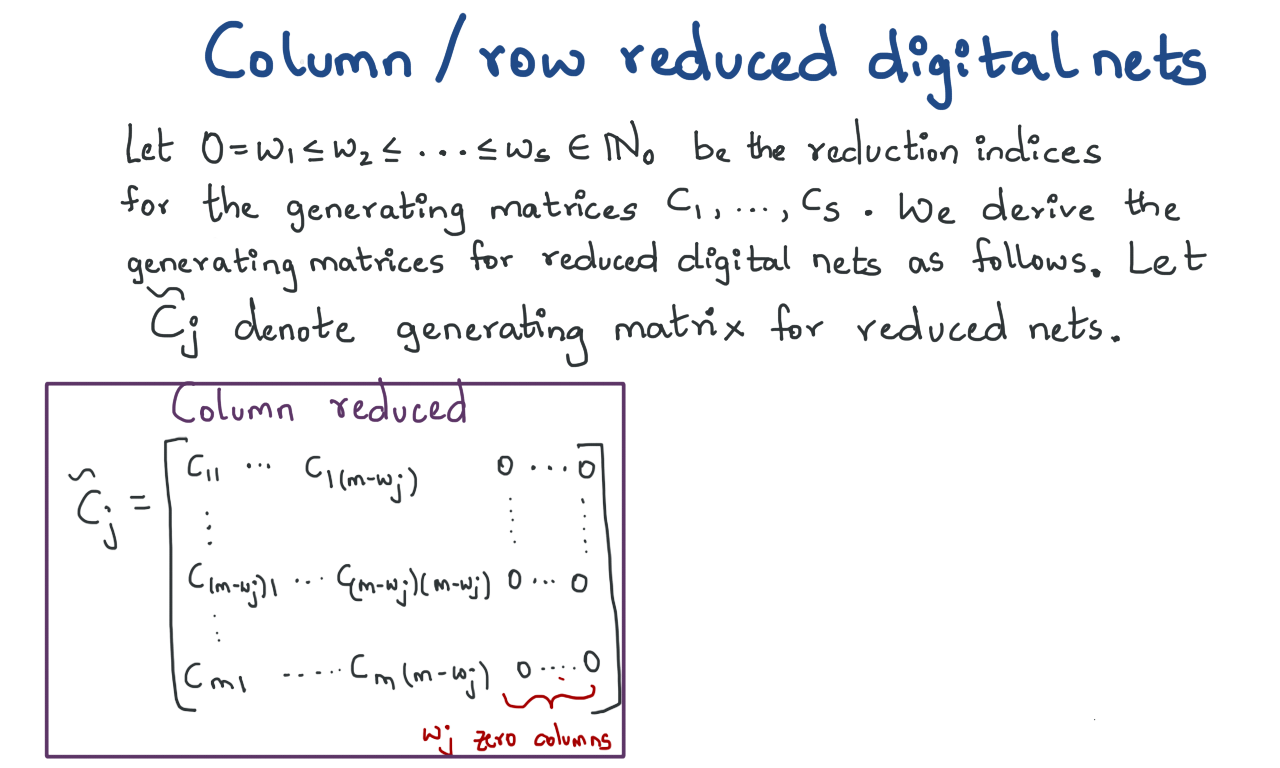 Column / row reduced digital nets
Let 0=w₁≤w₂≤...≤wₛ ∈ ℕ₀ be the reduction indices
for the generating matrices C₁, ..., Cₛ. We derive the
generating matrices for reduced digital nets as follows. Let
C̃ⱼ denote generating matrix for reduced nets.
Column reduced
C₁₁ ... C₁(m-wⱼ) 0 ... 0
C̃ⱼ =
C(m-wⱼ)1 ... C(m-wⱼ)(m-wⱼ) 0 ... 0
Cm1 ..... Cm(m-wⱼ) 0 .... 0
wⱼ zero columns